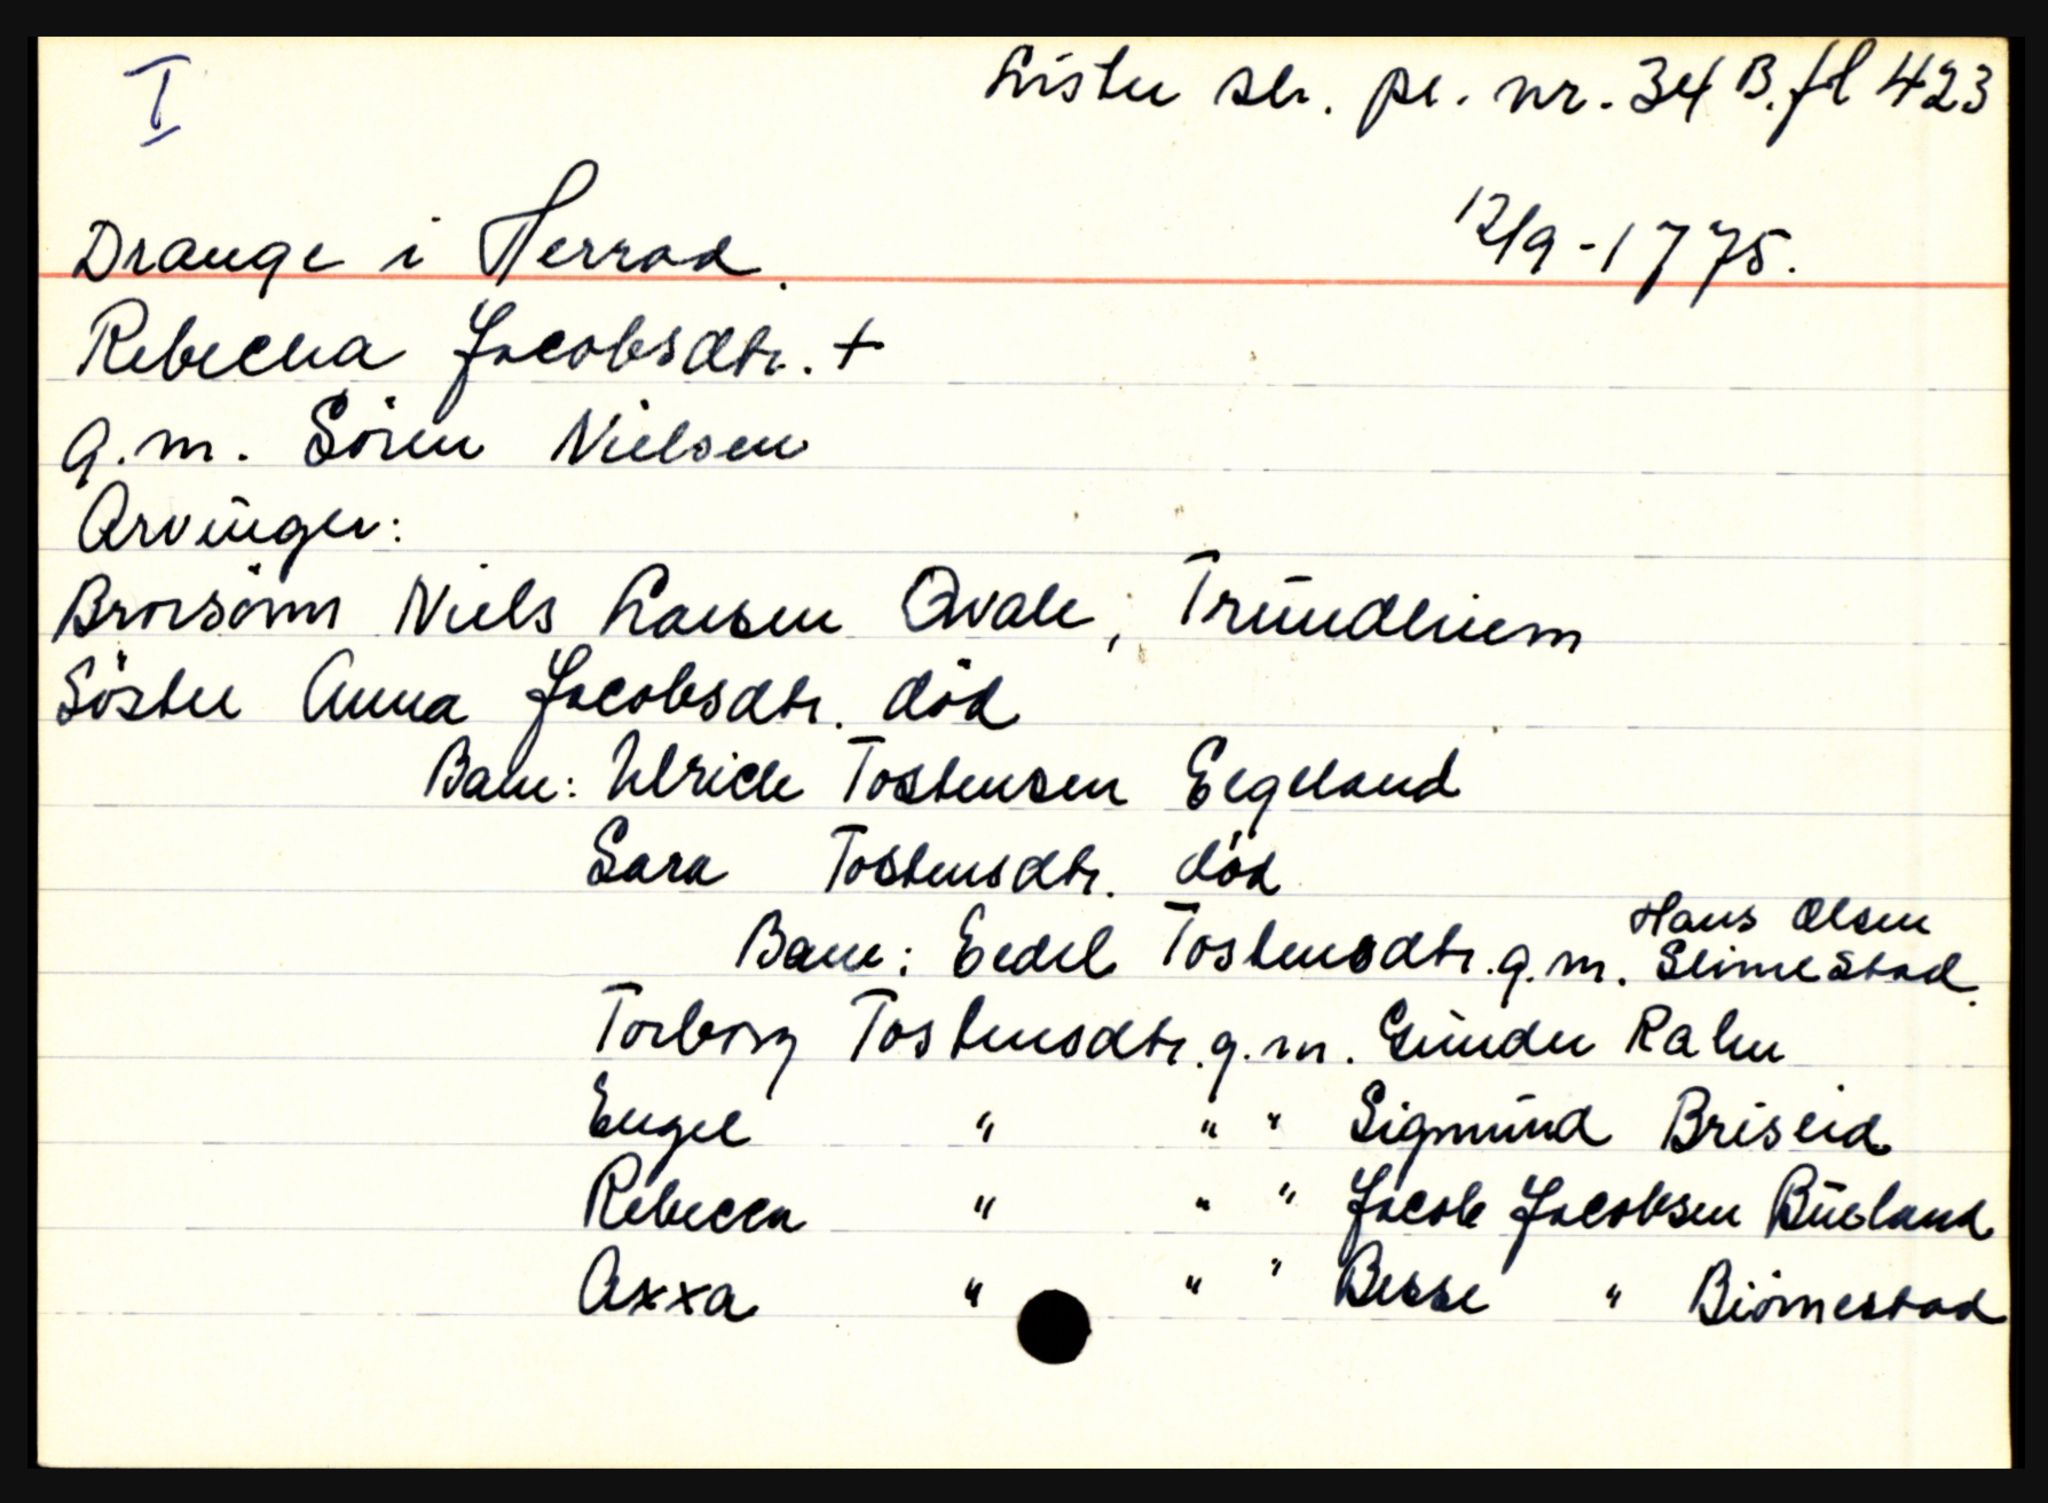 I
Lister skr. pr. nr. 34 B. fl 423
Drange i Herrad.
12/9-1775.
Rebecha Jacobsdtr. +
g.m. Sören Nielsen
Arvinger:
Brorsönn Niels Larsen Qvale, Trundhiem
Söster Anna Jacobsdtr. död
Barn: Ulrich Tostensen Eegeland
Sara Tostensdtr. död
Barn: Eedel Tostensdtr. g.m. Hans Olsen Slimestad.
Torborg Tostensdtr. g.m. Gunder Raln
Engel " " " Sigmund Briseid
Rebecca " " " Jacob Jacobsen Bueland
Axxa " " " Besse " Biörnestad